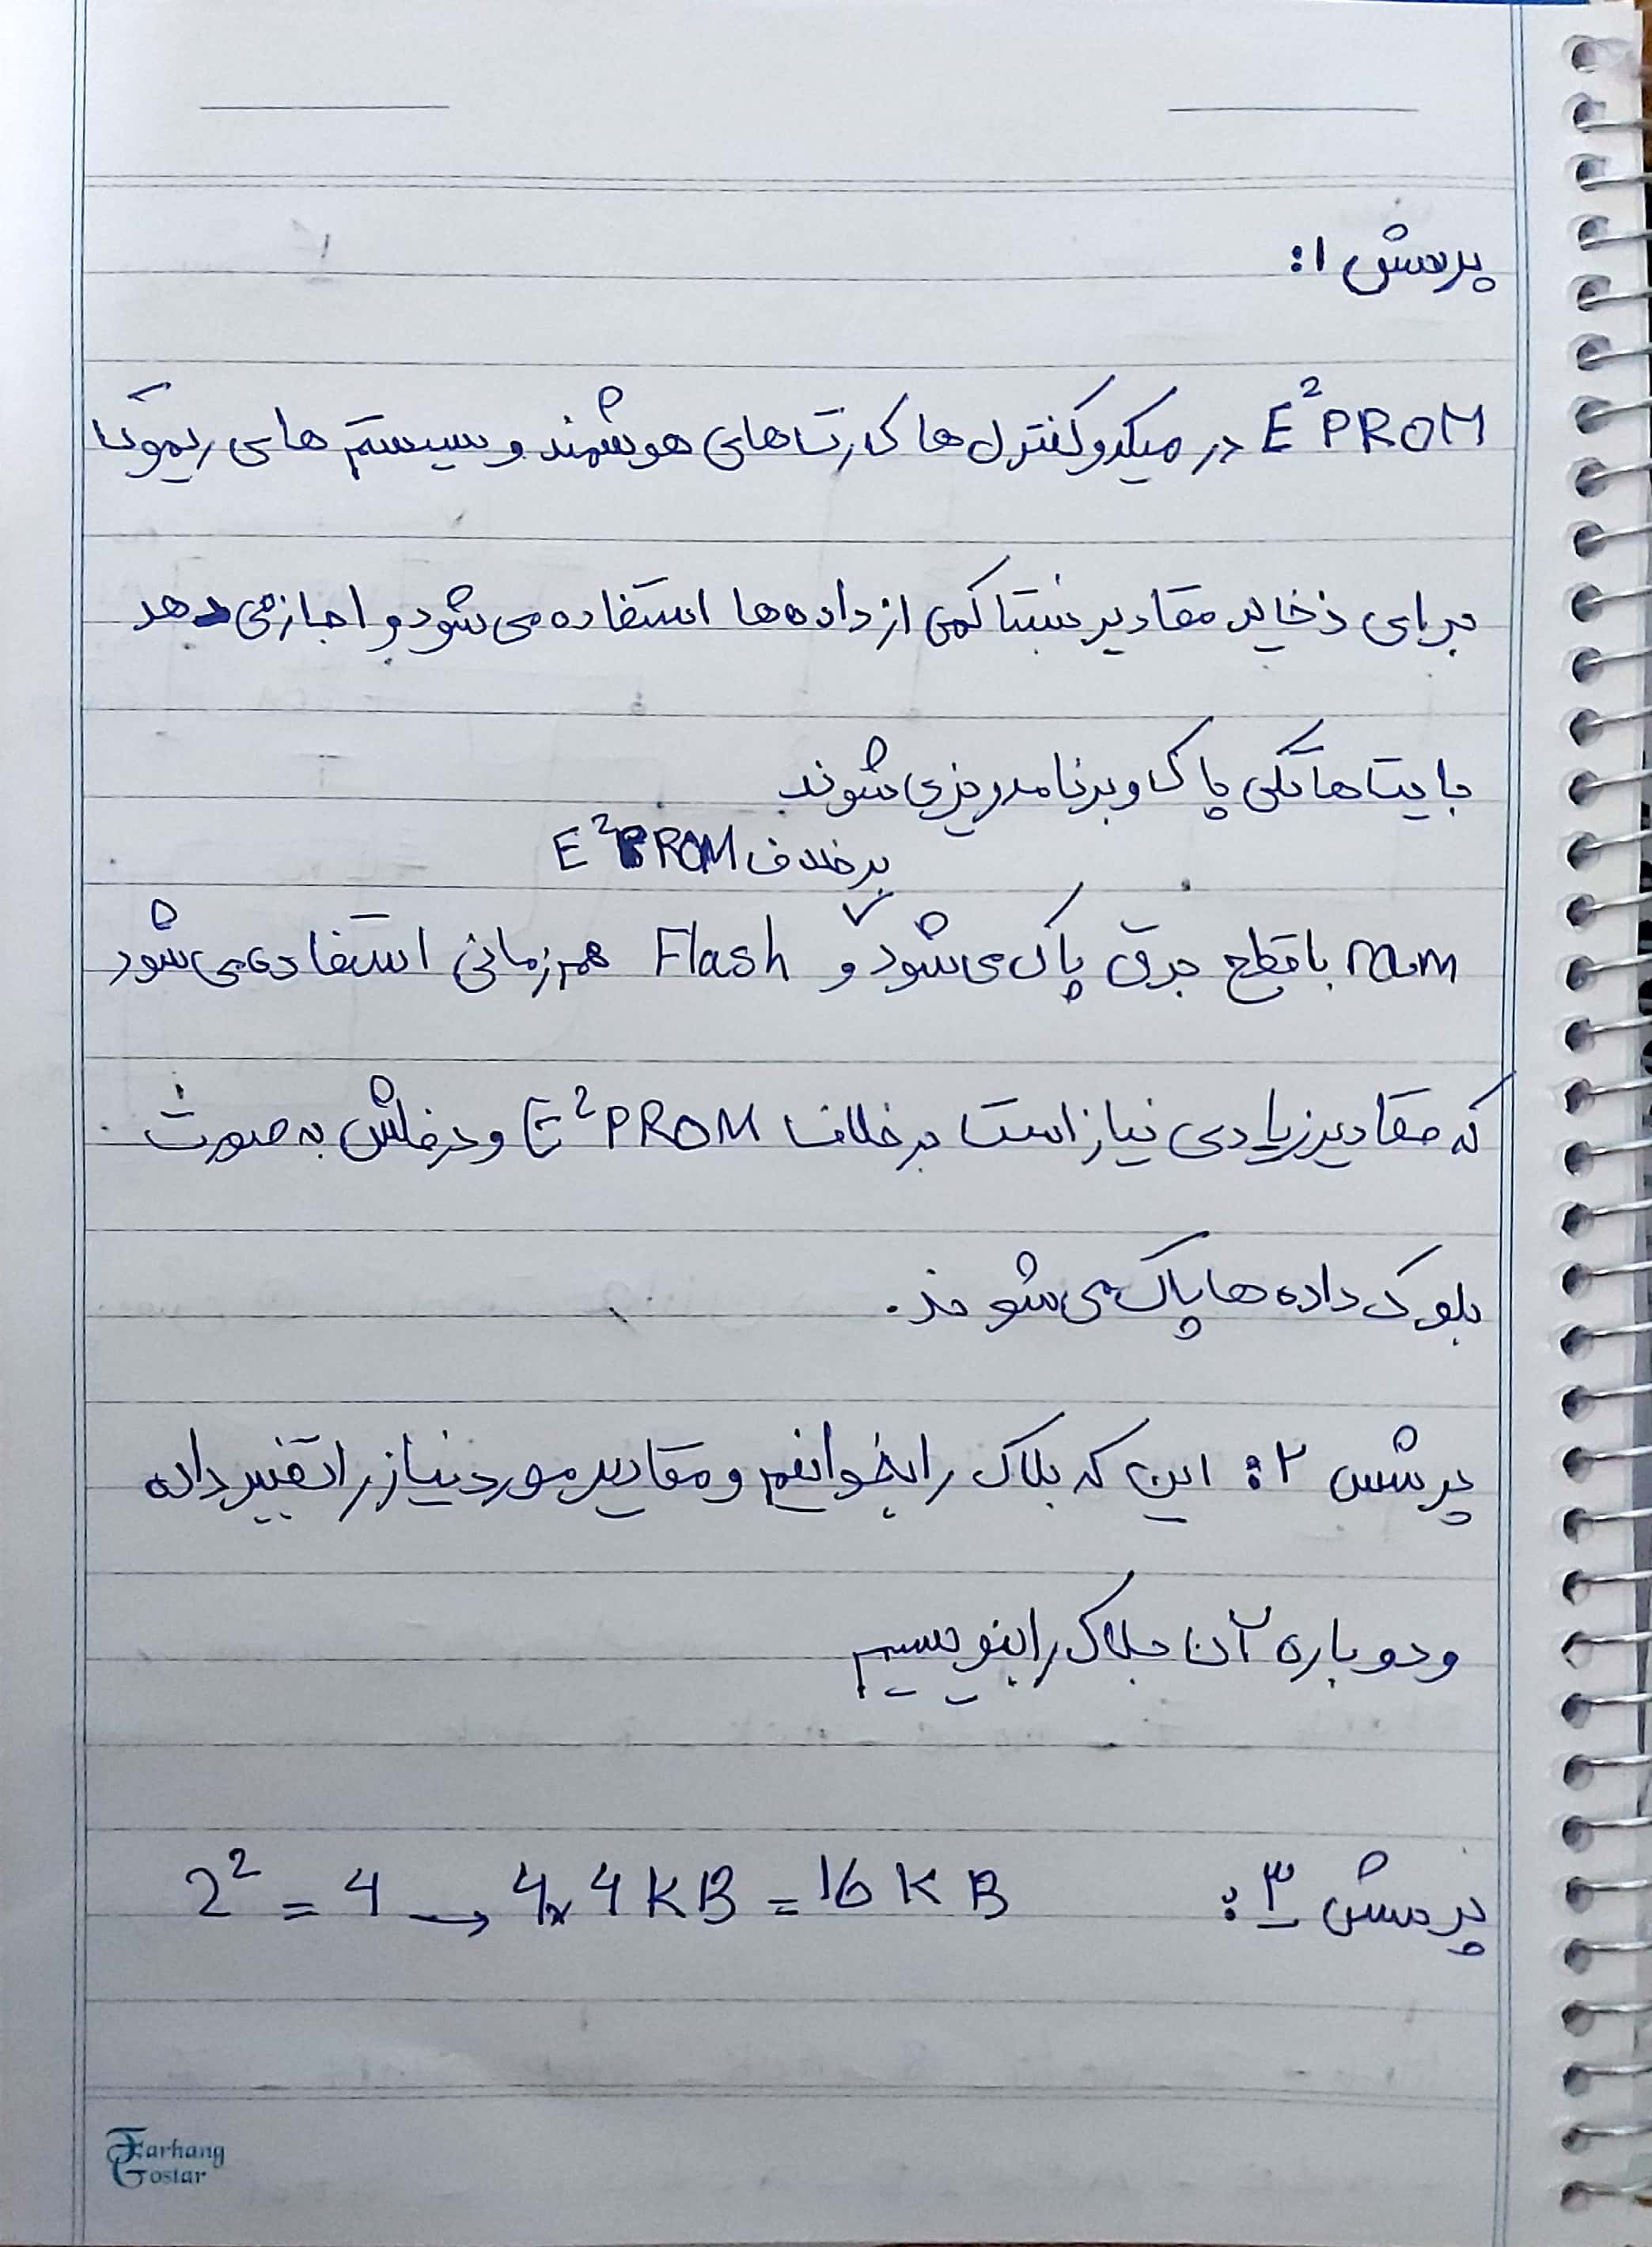 پرسش ۱:
E²PROM در میکروکنترل ها کارت های هوشمند و سیستم های ریموت
برای ذخایر مقادیر نسبتا کمی از داده ها استفاده می شود و اجازه می دهد
بایت ها تکی پاک و برنامه ریزی شوند.
برخلاف E²PROM
ram با قطع برق پاک می شود و Flash هم زمانی استفاده می شود
که مقادیر زیادی نیاز است برخلاف E²PROM و در فلش به صورت
بلوک داده ها پاک می شوند.
پرسش ۲: این که بلاک را بخوانیم و مقادیر مورد نیاز را تغییر داده
و دوباره آن بلاک را بنویسیم
پرسش ۳: 2² = 4 → 4 × 4 KB = 16 KB
Farhang
Gostar